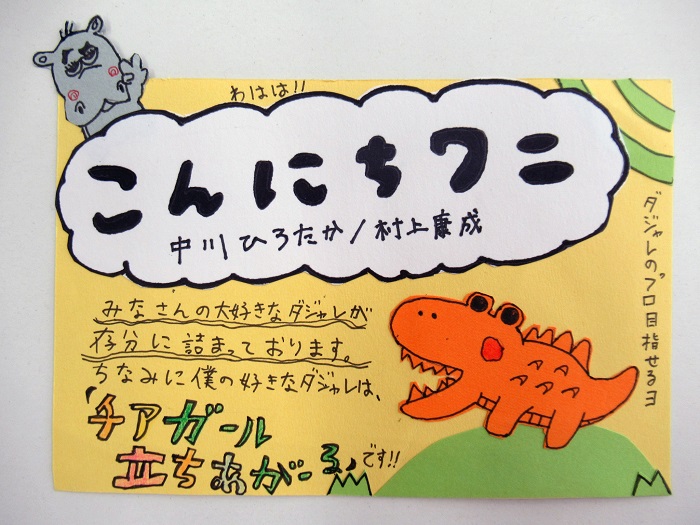 わはは!!
こんにちワニ
中川ひろたか/村上康成
ダジャレのプロ目指せるヨ
みなさんの大好きなダジャレが
存分に詰まっております。
ちなみに僕の好きなダジャレは、
「チアガール
立ちあがーる」です!!